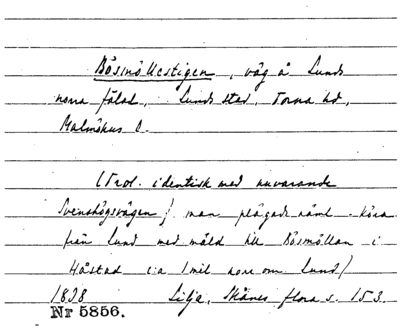 Bösmöllestigen, väg å Lunds
norra fälad, Lunds stad, Torna hd,
Malmöhus l.
(Trol. identisk med nuvarande
Svenshögsvägen); man plägade näml. köra
från Lund med mäld till Bösmöllan i
Håstad c:a 1 mil norr om Lund/
1838 Lilja, Skånes flora s. 153.
Nr 5856.